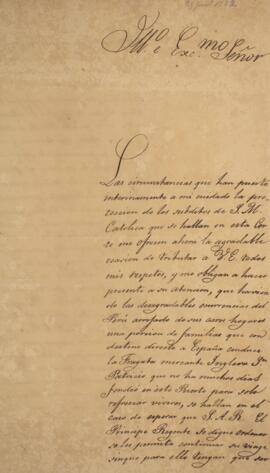 Illmo e Exc.mo Señor
Las circunstancias que han puesto
interinamente a mi cuidado la pro-
teccion de los subditos de S. M.
Catolica que se hallan en esta Cor-
te me ofrecen ahora la agradable
ocasion de tributar a V. E. todos
mis respetos, y me obligan a hacer
presente a su atencion, que haviendo
de las desagradables ocurrencias del
Perú arrojado de sus caros hogares
una porcion de familias que con
destino directo a España conduce
la Fragata mercante Inglesa
que no ha muchos dias
fondeó en este Puerto para solo
refrescar viveres, se hallan en el
caso de esperar que S. A. R. El
Principe Regente se digne ordenar
se les permita continuar su viage
sin que para ello tengan que